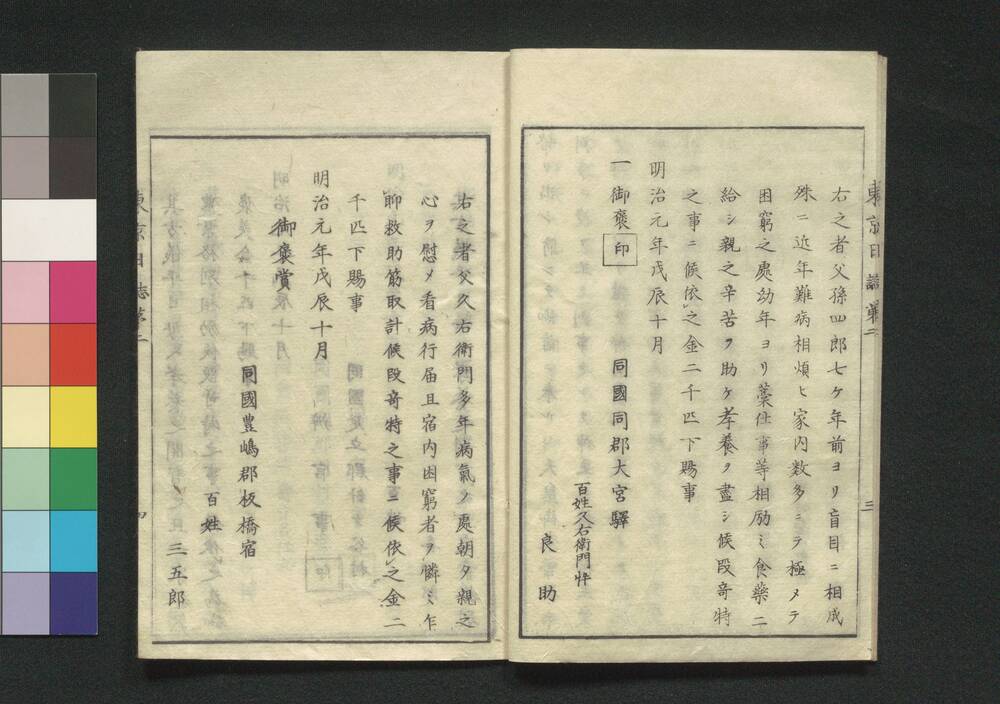 東京日誌第二
三
右之者父孫四郎七ケ年前ヨリ盲目ニ相成
殊ニ近年難病相煩ヒ家内数多ニテ極メテ
困窮之處幼年ヨリ藁仕事等相励ミ食藥ニ
給シ親之辛苦ヲ助ケ孝養ヲ盡シ候段竒特
之事ニ候依之金二千匹下賜事
明治元年戊辰十月
一御褒印
同國同郡大宮驛
百姓久右衛門忰
良助
右之者父久右衛門多年病氣ノ處朝夕親之
心ヲ慰メ看病行届且宿内困窮者ヲ憐ミ乍
聊救助筋取計候段竒特之事ニ候依之金二
千匹下賜事
明治元年戊辰十月
御褒賞
同國豊嶋郡板橋宿
百姓
三五郎
東京日誌第二
四